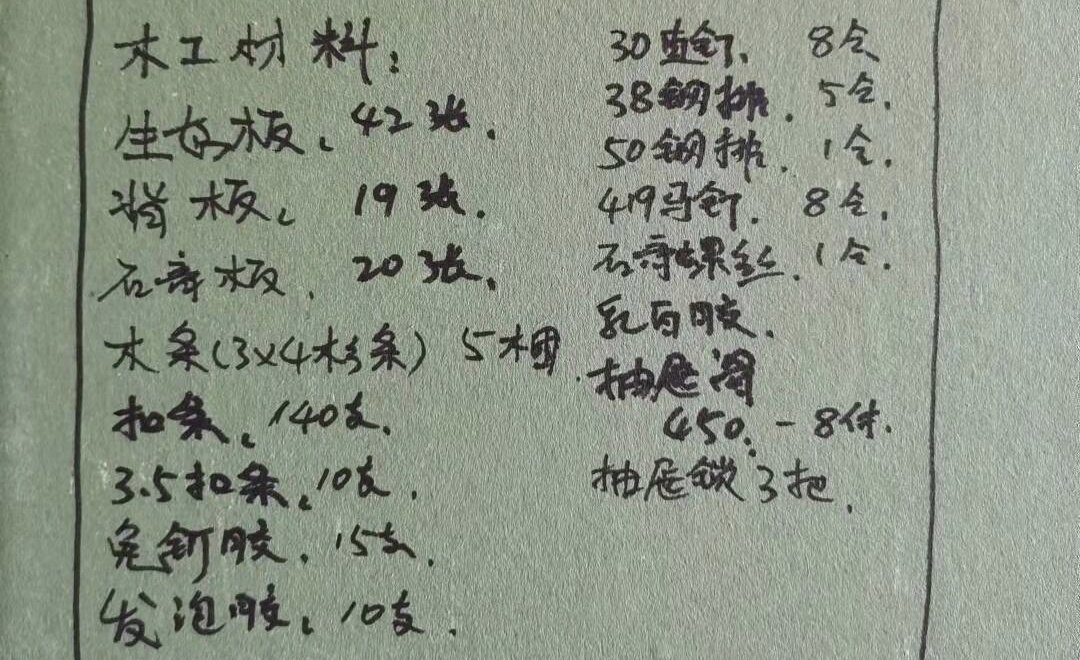 木工材料:
生态板、42张.
背板、19张.
石膏板、20张.
木条(3x4杉条) 5捆.
扣条、140支.
3.5扣条、10支.
免钉胶、15支.
发泡胶、10支.
30直钉、8合
38钢排、5合.
50钢排、1合.
419马钉、8合.
石膏螺丝、1合.
乳白胶.
抽屉滑
450、-8付.
抽屉锁3把.